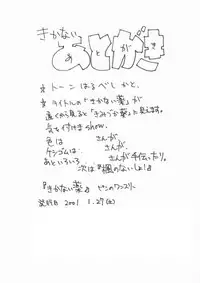 きかない
あとがき
☆ トーンはるべしかと。
☆ タイトルの「きかない薬」が
遠くから見ると「きみづか薬」に見えます。
気を付けませshow.
色は さんが
ケシゴムは、 さんが、
あといろいろ、 さんが手伝ったり。
次は『楓のないしょ!』
『きかない薬』
発行日 2001.1.27(土)